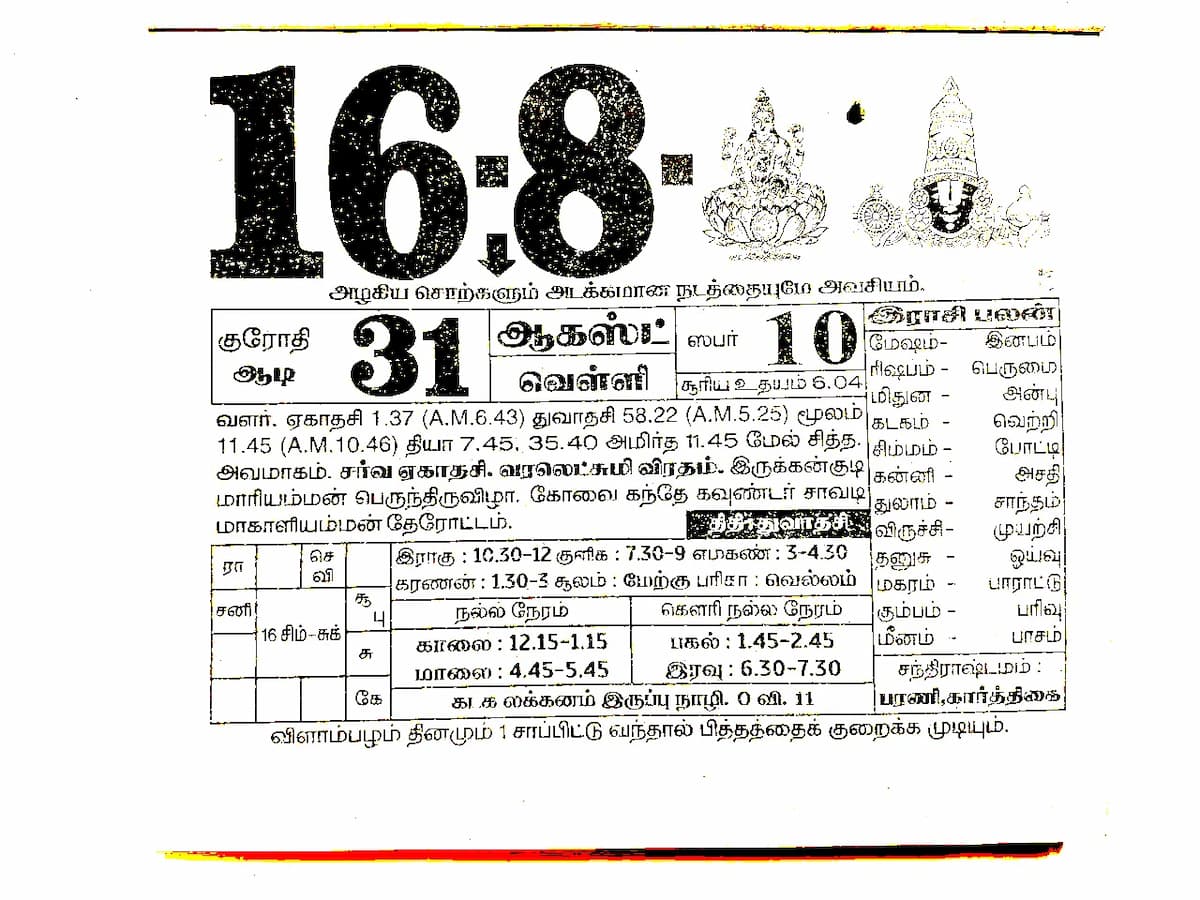 16-8-
அழகிய சொற்களும் அடக்கமான நடத்தையுமே அவசியம்.
குரோதி
ஆடி
31
ஆகஸ்ட்
வெள்ளி
ஸபர் 10
சூரிய உதயம் 6.04
வளர். ஏகாதசி 1.37 (A.M.6.43) துவாதசி 58.22 (A.M.5.25) மூலம்
11.45 (A.M.10.46) தியா 7.45, 35.40 அமிர்த 11.45 மேல் சித்த.
அவமாகம். சர்வ ஏகாதசி. வரலெட்சுமி விரதம். இருக்கன்குடி
மாரியம்மன் பெருந்திருவிழா. கோவை கந்தே கவுண்டர் சாவடி
மாகாளியம்மன் தேரோட்டம்.
திதி:துவாதசி
ரா
செ
வி
சனி
16 சிம்-சுக்
சூ
பு
சு
கே
இராகு : 10.30-12 குளிக : 7.30-9 எமகண் : 3-4.30
கரணன் : 1.30-3 சூலம் : மேற்கு பரிகா : வெல்லம்
நல்ல நேரம்
காலை : 12.15-1.15
மாலை : 4.45-5.45
கௌரி நல்ல நேரம்
பகல் : 1.45-2.45
இரவு : 6.30-7.30
கடக லக்கனம் இருப்பு நாழி. 0 வி. 11
இராசி பலன்
மேஷம்- இன்பம்
ரிஷபம் - பெருமை
மிதுன - அன்பு
கடகம் - வெற்றி
சிம்மம் - போட்டி
கன்னி - அசதி
துலாம் - சாந்தம்
விருச்சி- முயற்சி
தனுசு - ஓய்வு
மகரம் - பாராட்டு
கும்பம் - பரிவு
மீனம் - பாசம்
சந்திராஷ்டமம் :
பரணி,கார்த்திகை
விளாம்பழம் தினமும் 1 சாப்பிட்டு வந்தால் பித்தத்தைக் குறைக்க முடியும்.